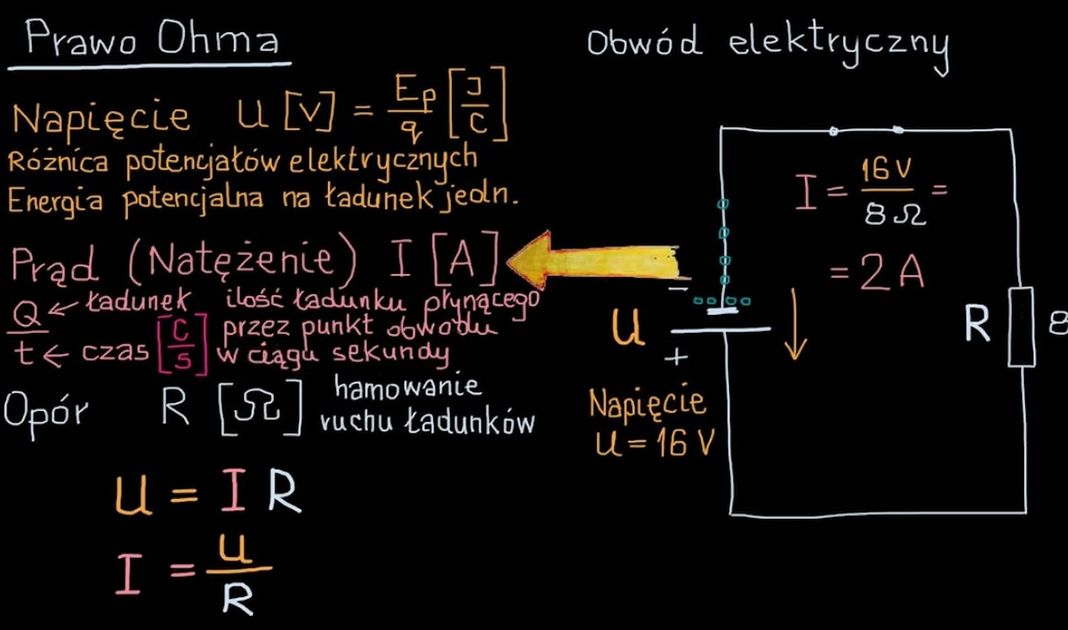 Prawo Ohma
Napięcie U [V] = Ep/q [J/C]
Różnica potencjałów elektrycznych
Energia potencjalna na ładunek jedn.
Prąd (Natężenie) I [A]
Q ← ładunek ilość ładunku płynącego
t ← czas [C/S] przez punkt obwodu
w ciągu sekundy
Opór R [Ω] hamowanie
ruchu ładunków
U = I R
I = U/R
Obwód elektryczny
I = 16 V / 8 Ω =
= 2 A
−
U
+
R 8
Napięcie
U = 16 V